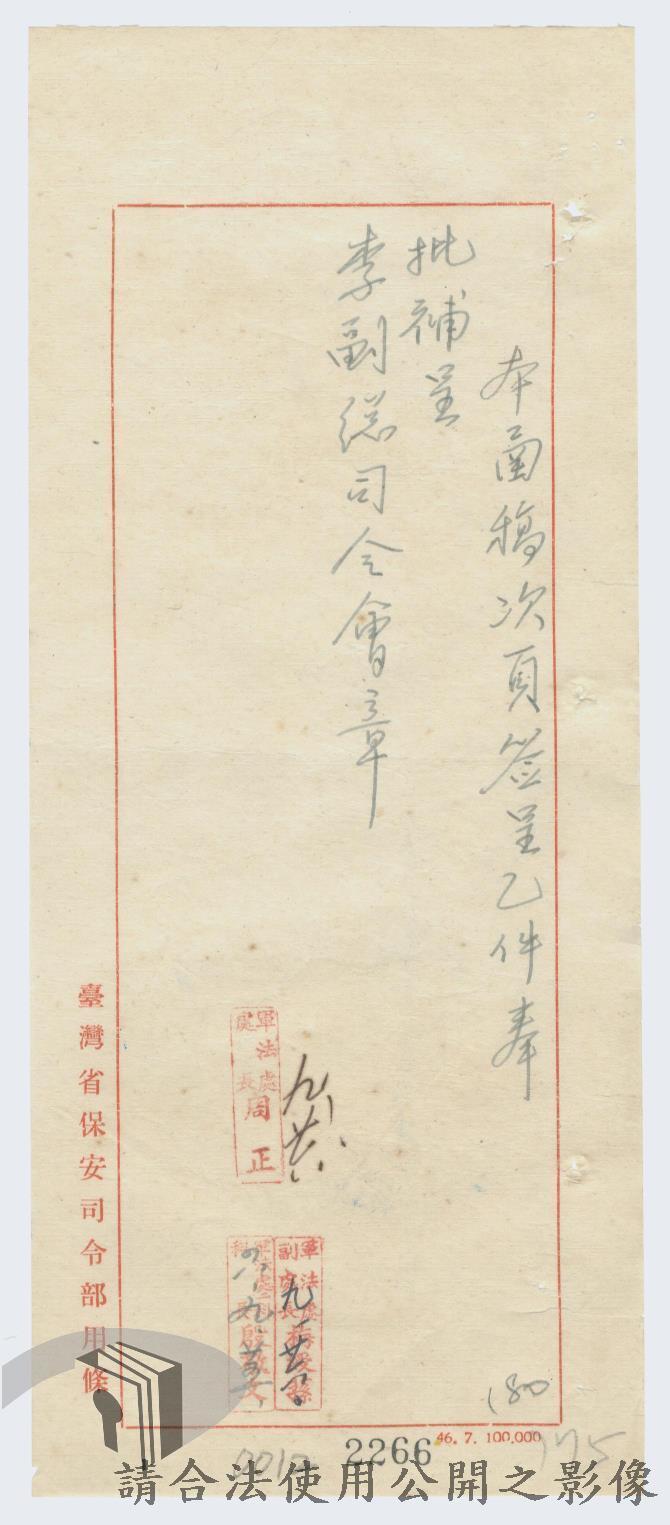 本圖稿次頁簽呈乙件奉
批補呈
李副總司令會章
軍法處
處長周正
九廿六
軍法處
副處長
九廿六
臺灣省保安司令部用條
180
175
2266
46. 7. 100,000
請合法使用公開之影像